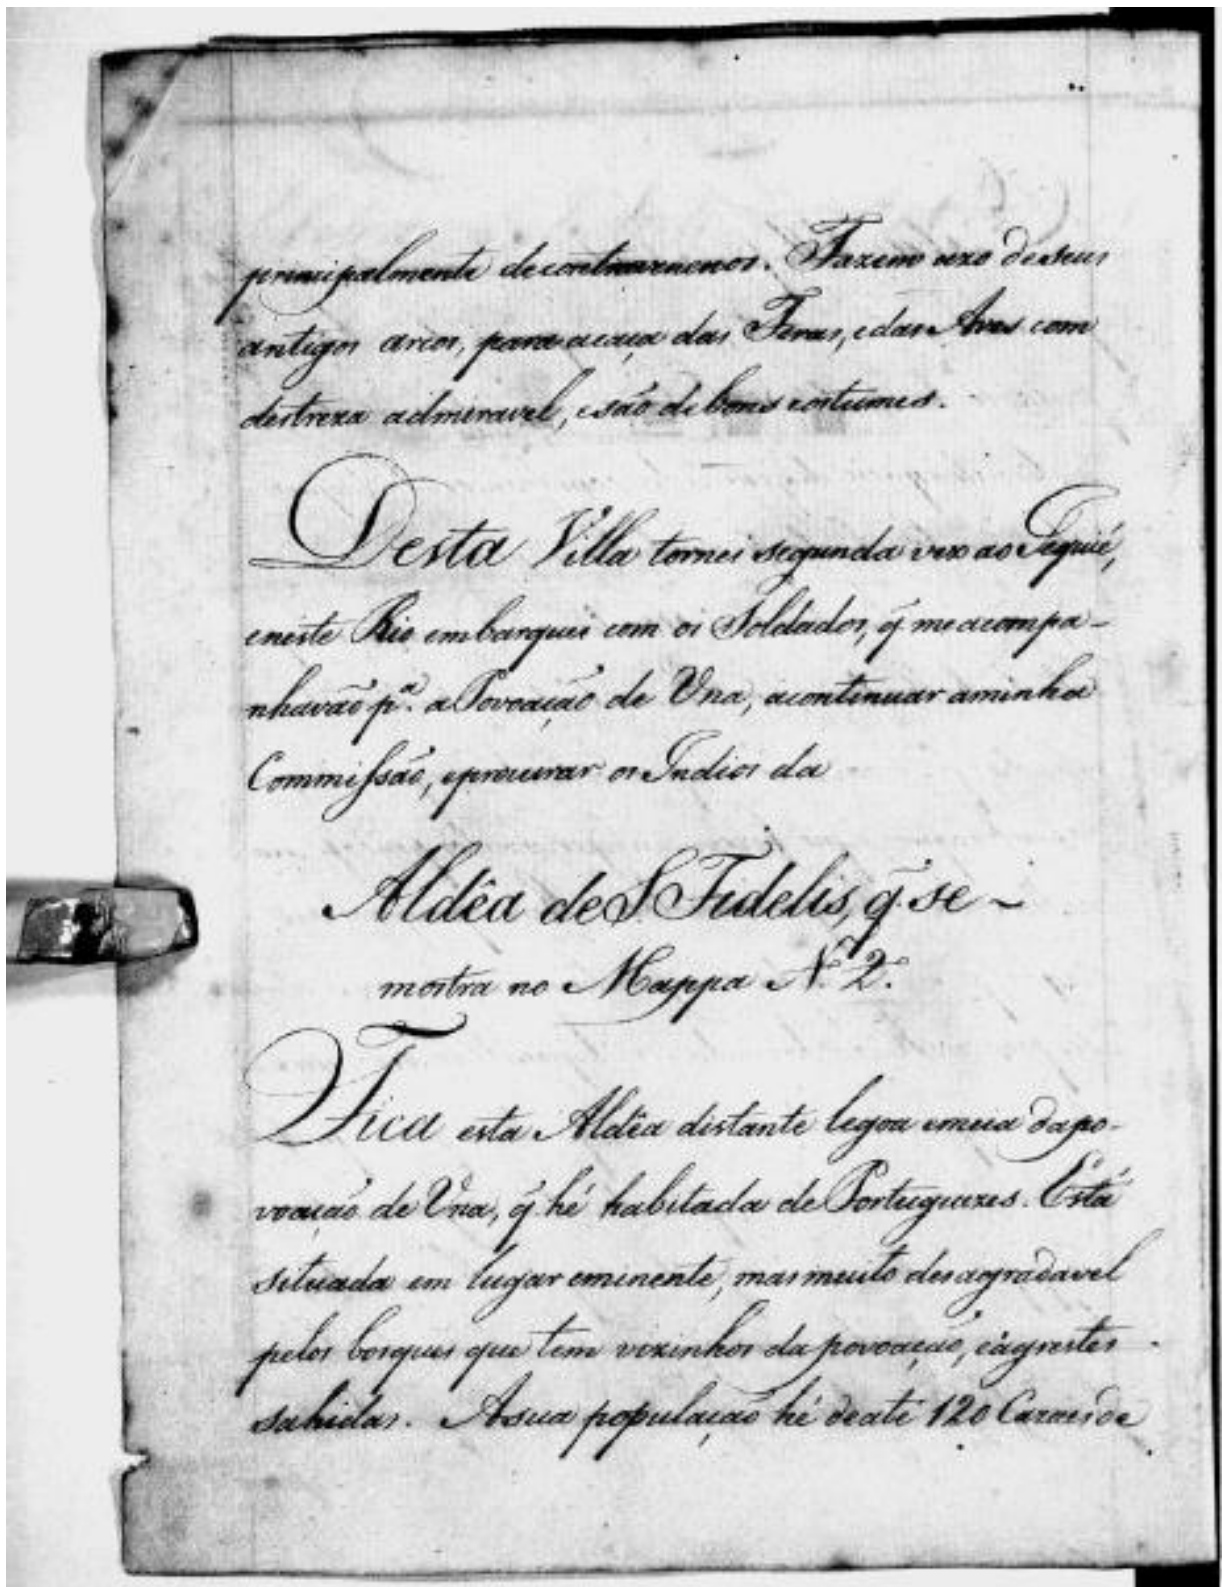 principalmente de contravenenos. Fazem uzo de seus
antigos arcos, para a caça das Feras, e das Aves com
destreza admiravel, e são de bons costumes.
Desta Villa tornei segunda vez ao Jequié,
e neste Rio embarquei com os Soldados, q̃ me acompa-
nhavão pª. a Povoação de Una, a continuar a minha
Commissão, e procurar os Indios da
Aldêa de S Fidelis, q̃ se ~
mostra no Mappa Nº 2º.
Fica esta Aldêa distante legoa e meia da po-
voação de Una, q̃ hé habitada de Portuguezes. Está
situada em lugar eminente, mas muito desagradavel
pelos bosques que tem vizinhos da povoação, e agrestes
sahidas. A sua população hé de até 120 Cazaes de